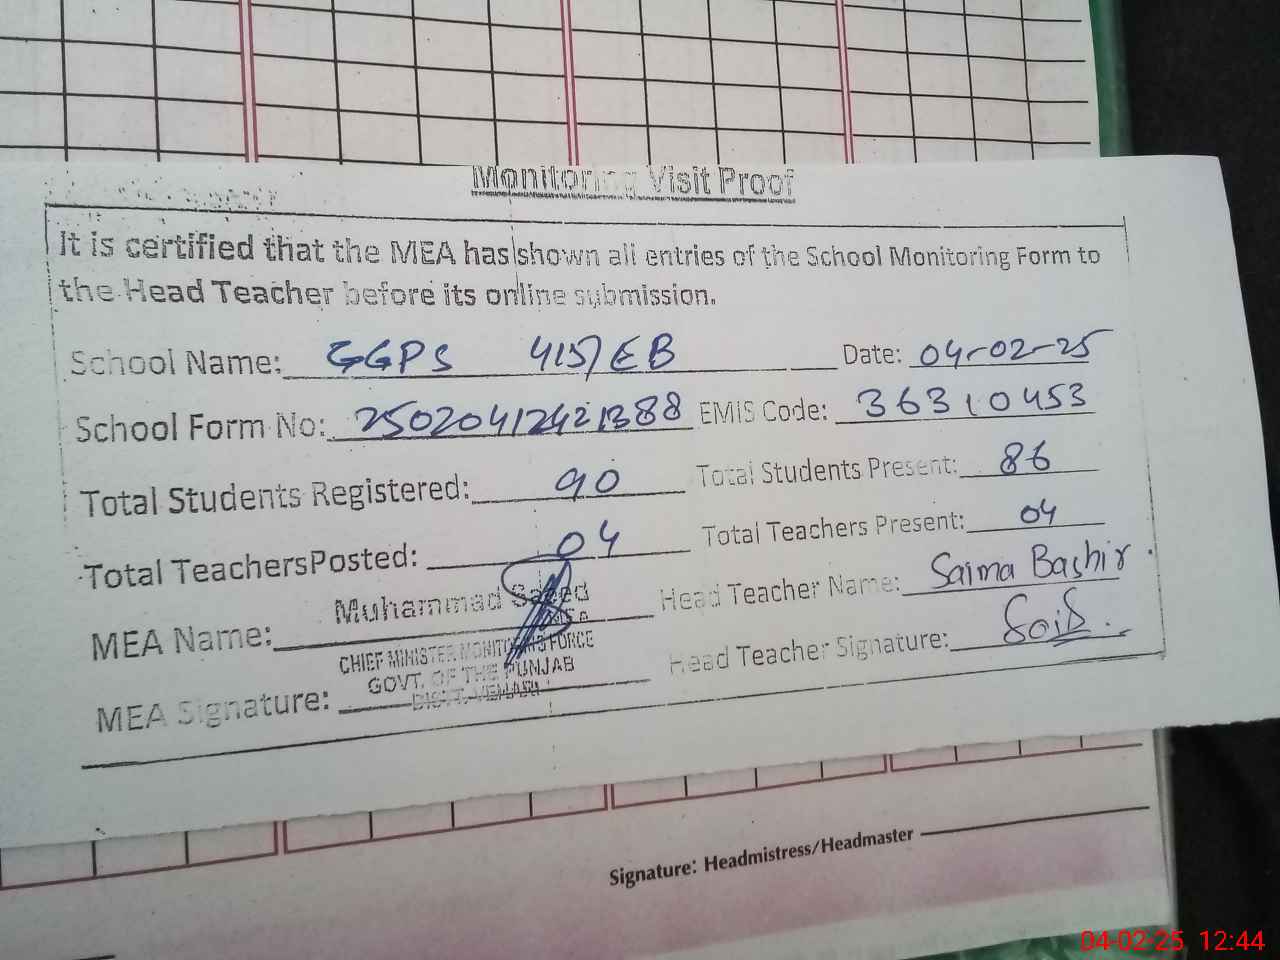 Monitoring Visit Proof
It is certified that the MEA has shown all entries of the School Monitoring Form to
the Head Teacher before its online submission.
School Name: GGPS 415/EB Date: 04-02-25
School Form No: 25020412421388 EMIS Code: 36310453
Total Students Registered: 90 Total Students Present: 86
Total TeachersPosted: 04 Total Teachers Present: 04
MEA Name: Muhammad Saeed Head Teacher Name: Saima Bashir
CHIEF MINISTER MONITORING FORCE
GOVT. OF THE PUNJAB
DISTT. VEHARI
MEA Signature: Head Teacher Signature:
Signature: Headmistress/Headmaster
04-02-25 12:44